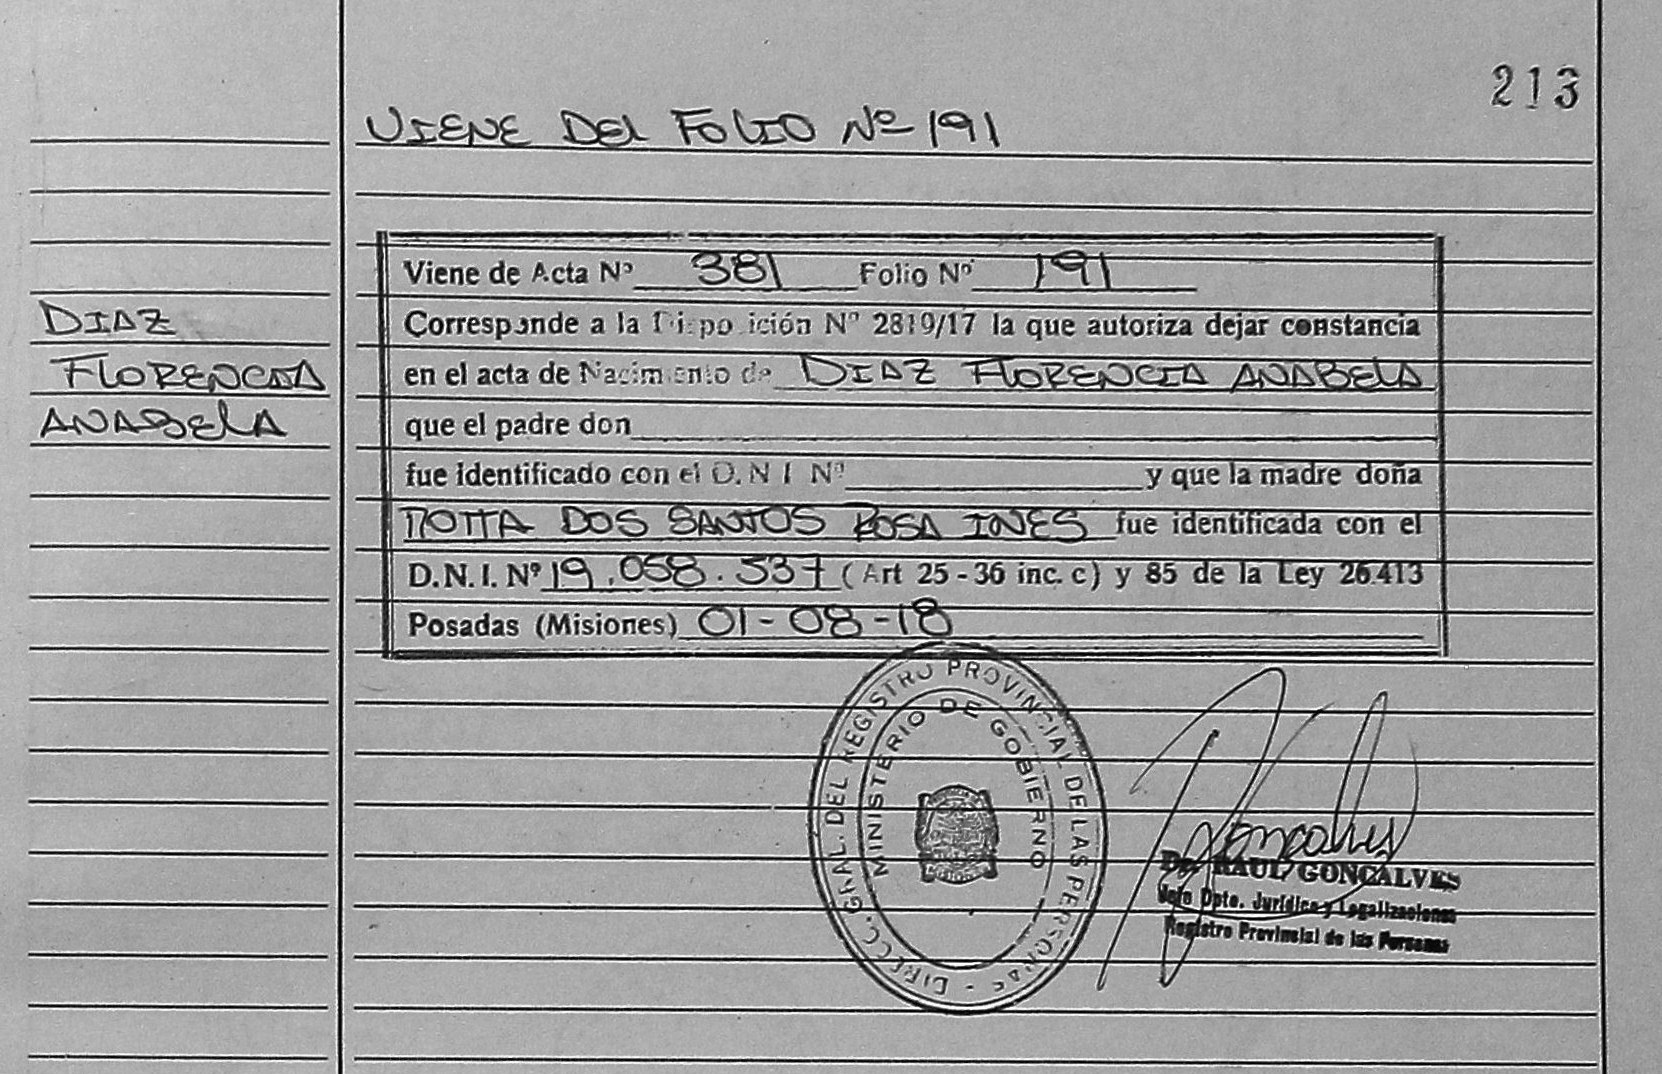 213
VIENE DEL FOLIO Nº 191
Viene de Acta Nº 381 Folio Nº 191
Corresponde a la Disposición Nº 2819/17 la que autoriza dejar constancia
en el acta de Nacimiento de DIAZ FLORENCIA ANABELA
que el padre don
fue identificado con el D.N.I Nº y que la madre doña
MOTTA DOS SANTOS ROSA INES fue identificada con el
D.N.I. Nº 19.058.537 (Art 25-36 inc. c) y 85 de la Ley 26.413
Posadas (Misiones) 01-08-18
DIAZ
FLORENCIA
ANABELA
DIRECC. GRAL. DEL REGISTRO PROVINCIAL DE LAS PERSONAS -
MINISTERIO DE GOBIERNO
Goncalves
Dr. RAUL GONCALVES
Jefe Dpto. Jurídico y Legalizaciones
Registro Provincial de las Personas